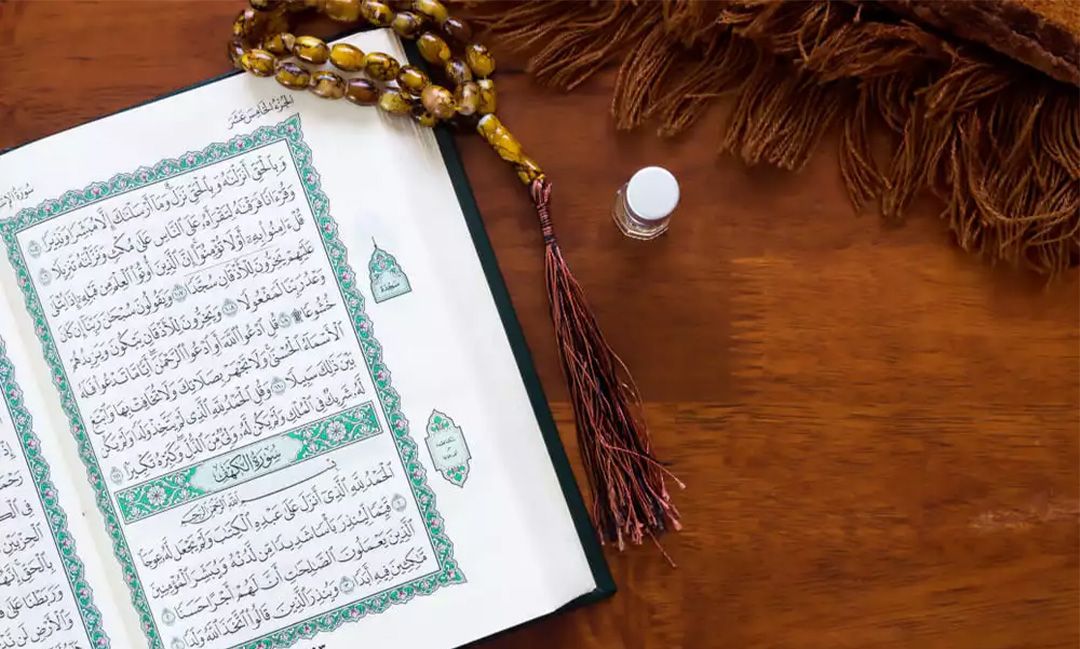 الجُزءُ الخَامِسَ عَشَرَ
سُورَةُ
وَبِالْحَقِّ أَنزَلْنَٰهُ وَبِالْحَقِّ نَزَلَ وَمَا أَرْسَلْنَٰكَ إِلَّا مُبَشِّرًا وَنَذِيرًا ١٠٥
وَقُرْءَانًا فَرَقْنَٰهُ لِتَقْرَأَهُۥ عَلَى النَّاسِ عَلَىٰ مُكْثٍ وَنَزَّلْنَٰهُ تَنزِيلًا ١٠٦
قُلْ ءَامِنُوا۟ بِهِۦٓ أَوْ لَا تُؤْمِنُوٓا۟ إِنَّ الَّذِينَ أُوتُوا۟ الْعِلْمَ مِن قَبْلِهِۦٓ إِذَا يُتْلَىٰ
عَلَيْهِمْ يَخِرُّونَ لِلْأَذْقَانِ سُجَّدًا ١٠٧ وَيَقُولُونَ سُبْحَٰنَ رَبِّنَآ إِن كَانَ
وَعْدُ رَبِّنَا لَمَفْعُولًا ١٠٨ وَيَخِرُّونَ لِلْأَذْقَانِ يَبْكُونَ وَيَزِيدُهُمْ
خُشُوعًا ۩ ١٠٩ قُلِ ادْعُوا۟ اللَّهَ أَوِ ادْعُوا۟ الرَّحْمَٰنَ أَيًّا مَّا تَدْعُوا۟ فَلَهُ
الْأَسْمَآءُ الْحُسْنَىٰ وَلَا تَجْهَرْ بِصَلَاتِكَ وَلَا تُخَافِتْ بِهَا وَابْتَغِ
بَيْنَ ذَٰلِكَ سَبِيلًا ١١٠ وَقُلِ الْحَمْدُ لِلَّهِ الَّذِى لَمْ يَتَّخِذْ وَلَدًا وَلَمْ يَكُن
لَّهُۥ شَرِيكٌ فِى الْمُلْكِ وَلَمْ يَكُن لَّهُۥ وَلِىٌّ مِّنَ الذُّلِّ وَكَبِّرْهُ تَكْبِيرًا ١١١
سُورَةُ الكَهْفِ
بِسْمِ اللَّهِ الرَّحْمَٰنِ الرَّحِيمِ
الْحَمْدُ لِلَّهِ الَّذِىٓ أَنزَلَ عَلَىٰ عَبْدِهِ الْكِتَٰبَ وَلَمْ يَجْعَل لَّهُۥ عِوَجَا ١
قَيِّمًا لِّيُنذِرَ بَأْسًا شَدِيدًا مِّن لَّدُنْهُ وَيُبَشِّرَ الْمُؤْمِنِينَ
الَّذِينَ يَعْمَلُونَ الصَّٰلِحَٰتِ أَنَّ لَهُمْ أَجْرًا حَسَنًا ٢
مَّٰكِثِينَ فِيهِ أَبَدًا ٣ وَيُنذِرَ الَّذِينَ قَالُوا۟ اتَّخَذَ اللَّهُ وَلَدًا ٤
سَجْدَة
فِى
الْحِزْبَيْنِ
بِالْحَقِّ إِنَّهُمْ
وَرَبَطْنَا عَلَىٰ
وَالْأَرْضِ لَن